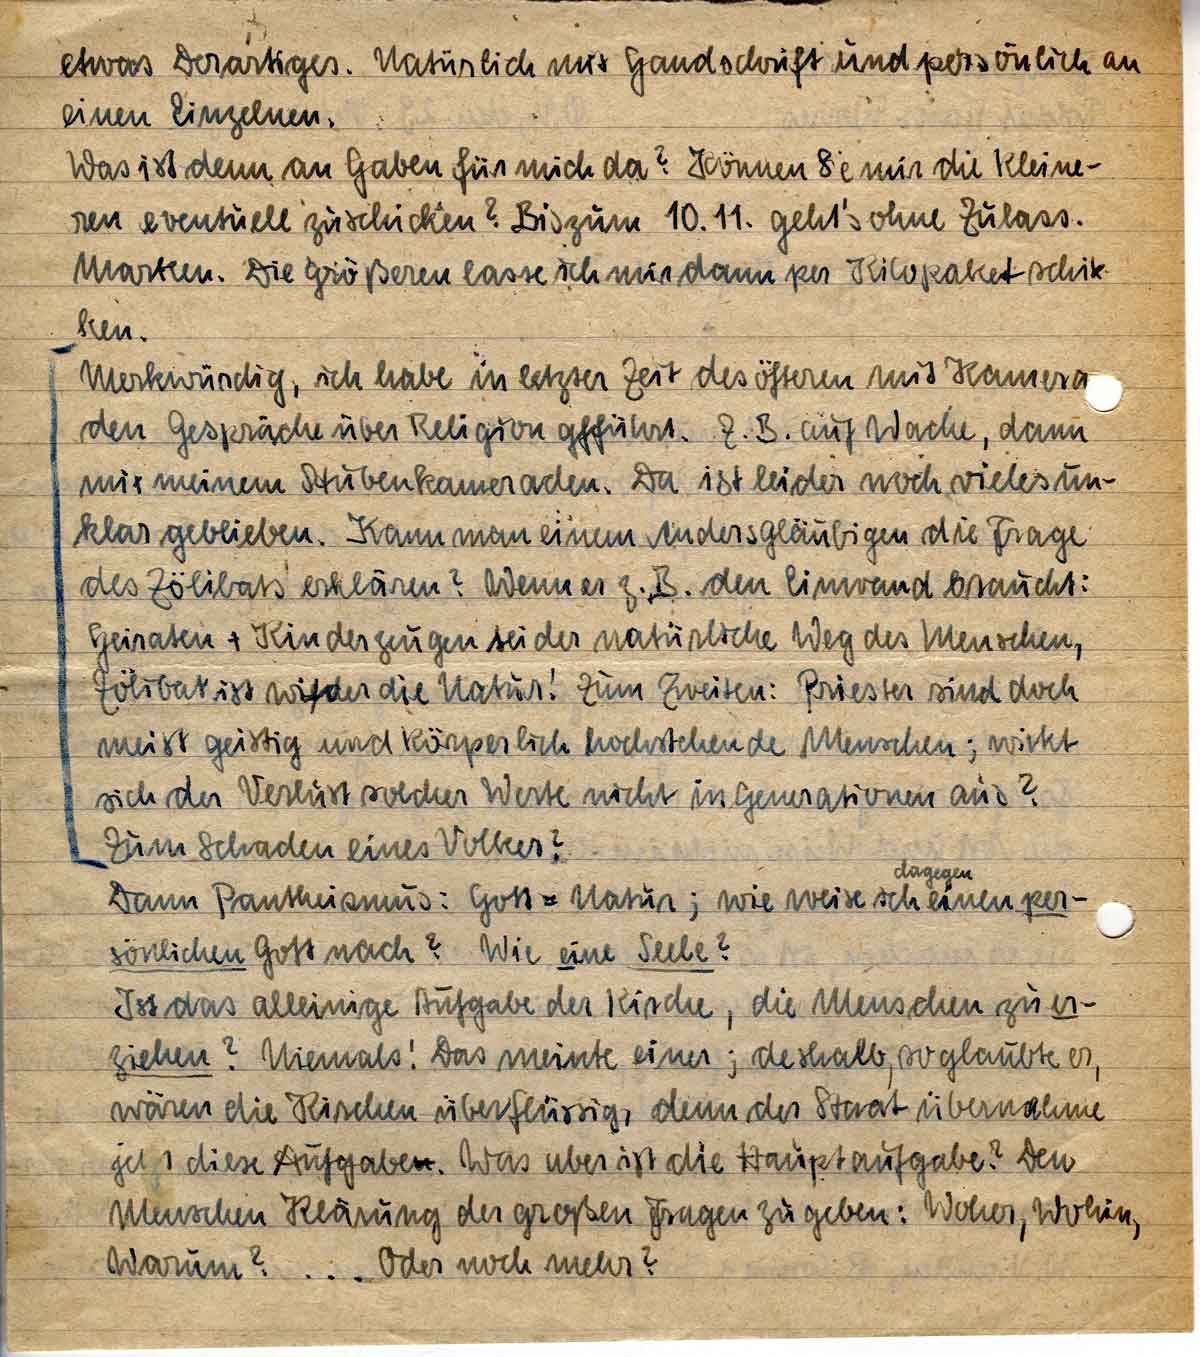 etwas Derartiges. Natürlich mit Handschrift und persönlich an
einen Einzelnen.
Was ist denn an Gaben für mich da? Können Sie mir die Kleine-
ren eventuell zuschicken? Bis zum 10.11. geht's ohne Zulass.
Marken. Die Größeren lasse ich mir dann per Kilopaket schik-
ken.
Merkwürdig, ich habe in letzter Zeit des öfteren mit Kamera
den Gespräche über Religion geführt. Z.B. auf Wache, dann
mit meinem Stubenkameraden. Da ist leider noch vieles un-
klar geblieben. Kann man einem Andersgläubigen die Frage
des Zölibats erklären? Wenn er z.B. den Einwand braucht:
Heiraten + Kinderzeugen sei der natürliche Weg des Menschen,
Zölibat ist wider die Natur! Zum Zweiten: Priester sind doch
meist geistig und körperlich hochstehende Menschen; wirkt
sich der Verlust solcher Werte nicht in Generationen aus?
Zum Schaden eines Volkes?
Dann Pantheismus: Gott = Natur; wie weise ich dagegen einen per-
sönlichen Gott nach? Wie eine Seele?
Ist das alleinige Aufgabe der Kirche, die Menschen zu er-
ziehen? Niemals! Das meinte einer; deshalb, so glaubte er,
wären die Kirchen überflüssig, denn der Staat übernehme
jetzt diese Aufgaben. Was aber ist die Hauptaufgabe? Den
Menschen Klärung der großen Fragen zu geben: Woher, Wohin,
Warum? . . . Oder noch mehr?